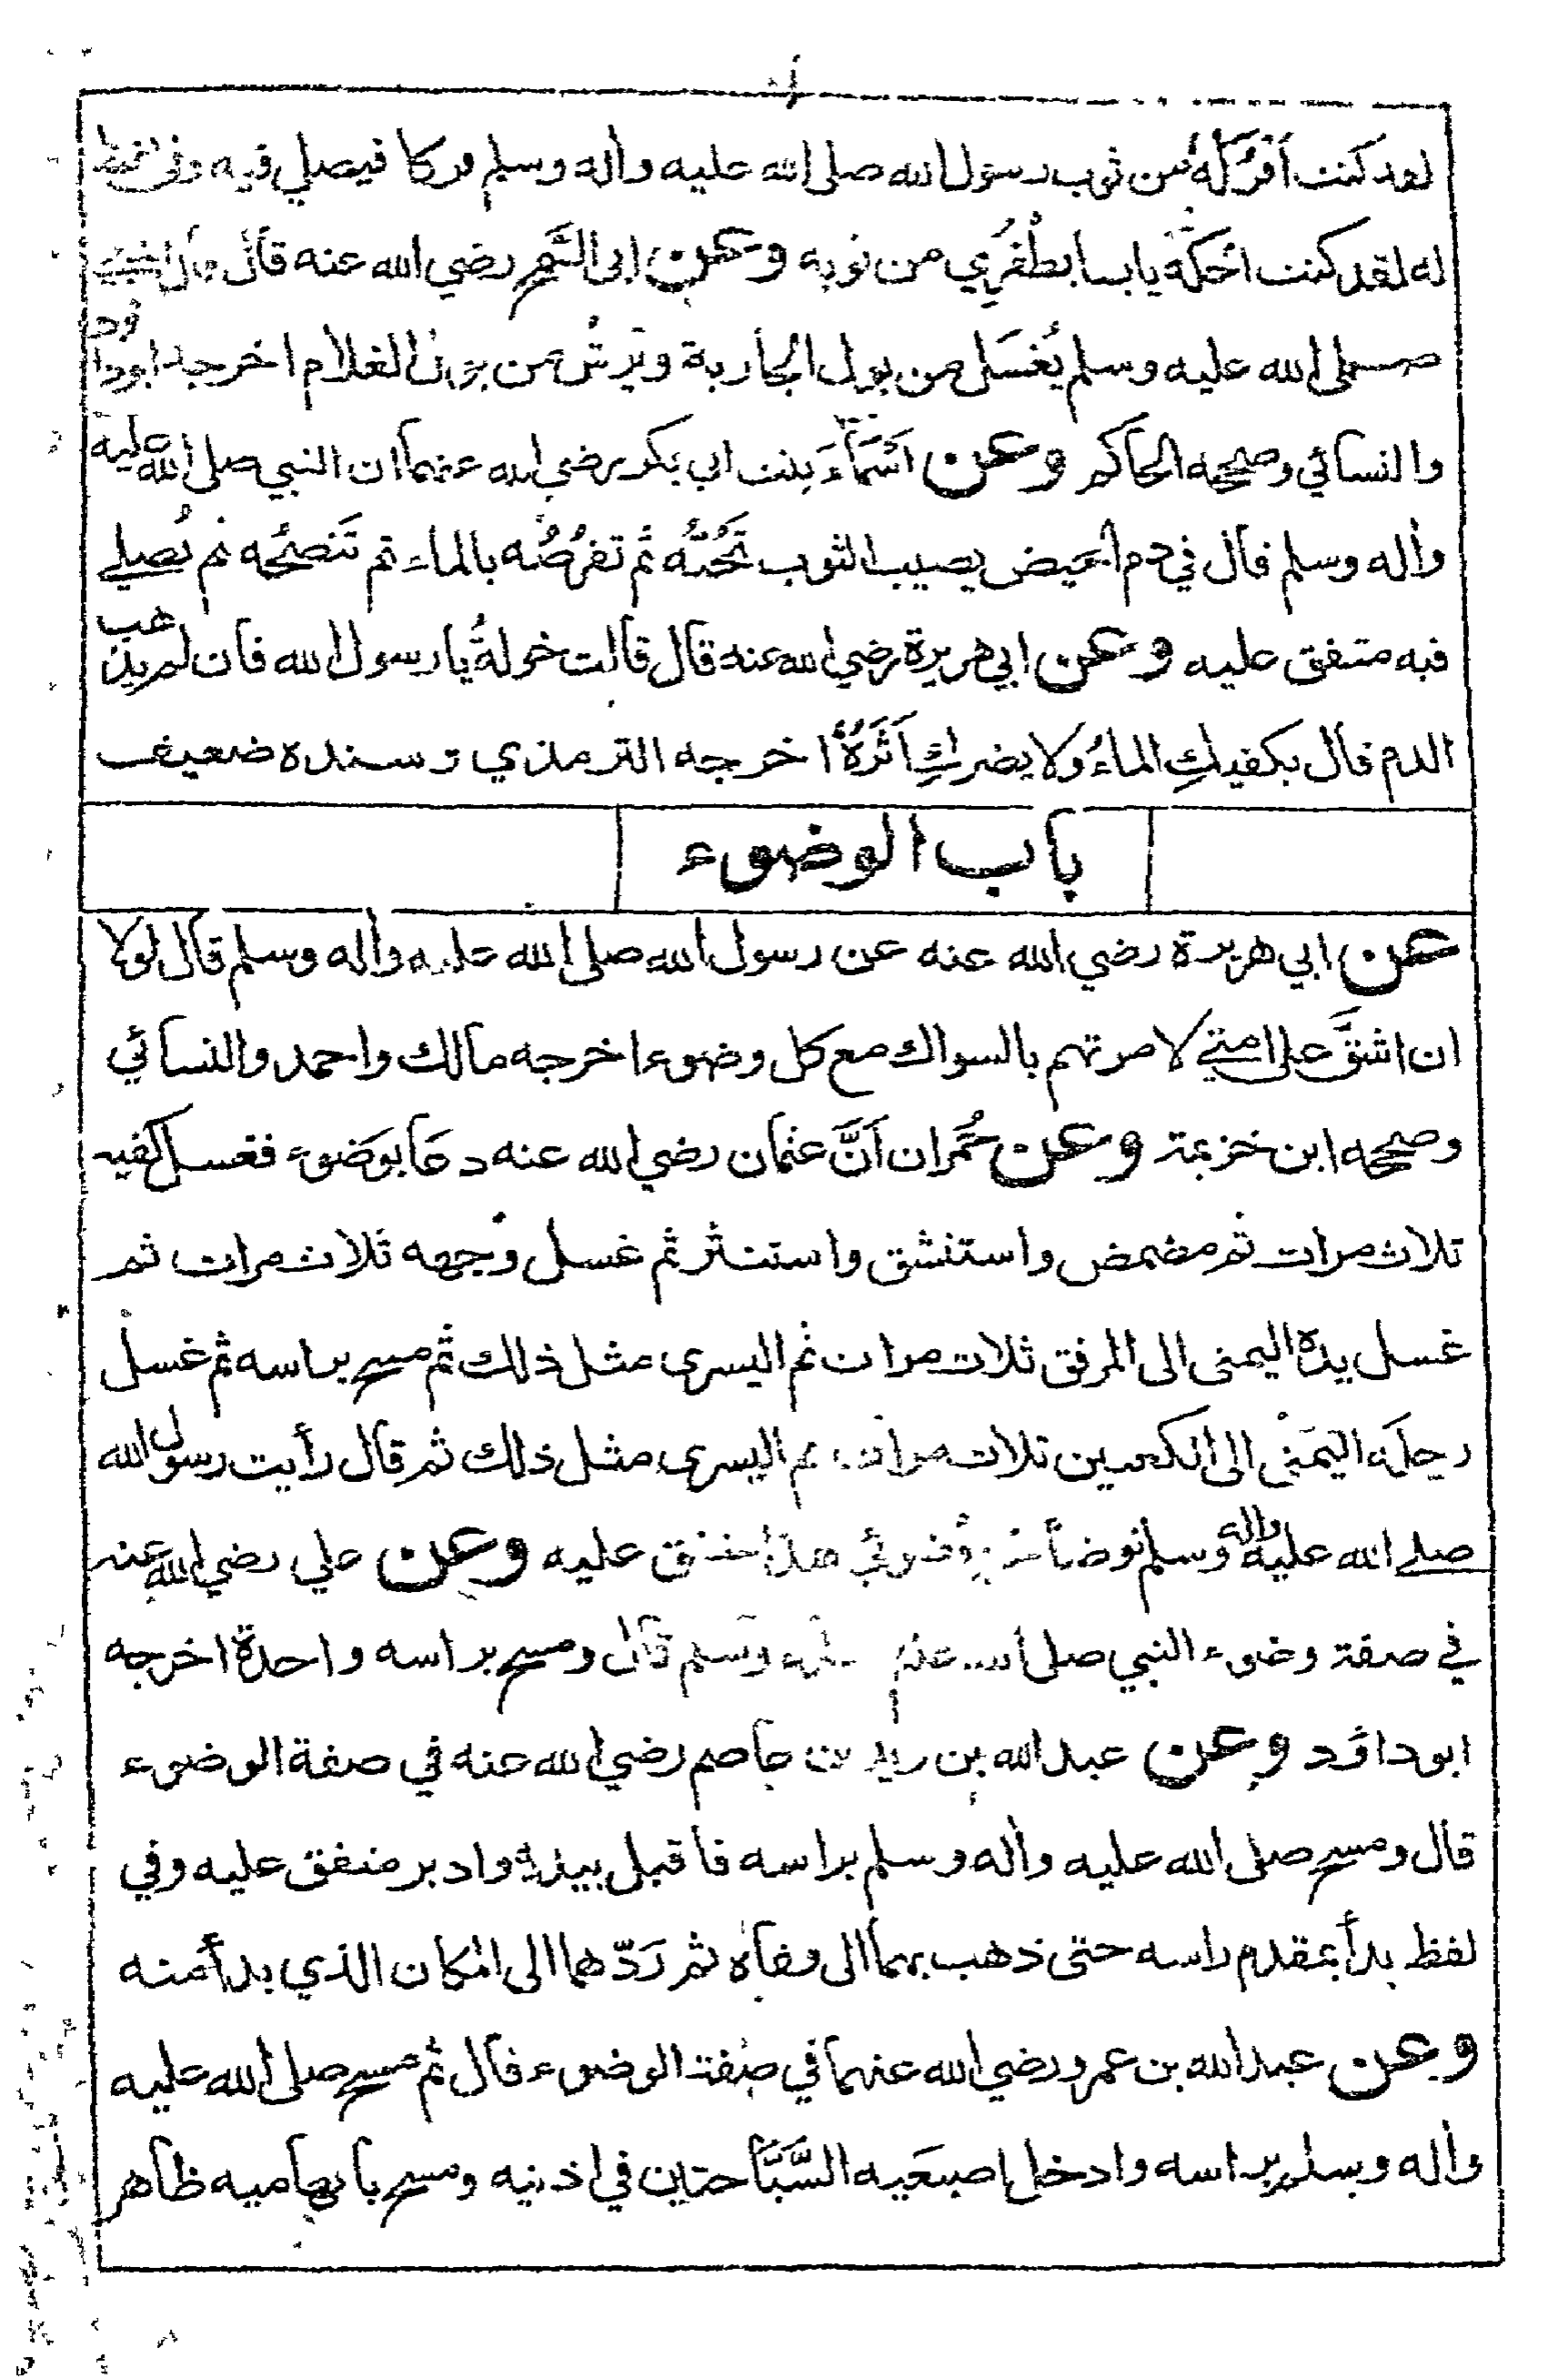 لقد كنت أفركه من ثوب رسول الله صلى الله عليه واله وسلم فركا فيصلي فيه وفي لفظ
له لقد كنت احكه يابسا بظفري من ثوبه وعن ابي السمح رضي الله عنه قال قال النبي
صلى الله عليه وسلم يُغسَل من بول الجارية ويُرش من بول الغلام اخرجه ابوداود
والنسائي وصححه الحاكم وعن اَسْمَاءَ بنت ابي بكر رضي الله عنهما ان النبي صلى الله عليه
واله وسلم قال في دم الحيض يصيب الثوب تَحُتُّه ثم تقرُصُه بالماء ثم تَنضَحُه ثم تُصلي
فيه متفق عليه وعن ابي هريرة رضي الله عنه قال قالت خولةُ يا رسول الله فان لم يذهب
الدم قال يكفيكِ الماءُ ولا يضركِ اَثَرُهُ اخرجه الترمذي وسنده ضعيف
باب الوضوء
عن ابي هريرة رضي الله عنه عن رسول الله صلى الله عليه واله وسلم قال لولا
ان اشقَّ على امتي لامرتهم بالسواك مع كل وضوء اخرجه مالك واحمد والنسائي
وصححه ابن خزيمة وعن حُمران اَنَّ عثمان رضي الله عنه دعا بوَضوء فغسل كفيه
ثلاث مرات ثم مضمض واستنشق واستنثر ثم غسل وجهه ثلاث مرات ثم
غسل يده اليمنى الى المرفق ثلاث مرات ثم اليسرى مثل ذلك ثم مسح براسه ثم غسل
رجله اليمنى الى الكعبين ثلاث مرات ثم اليسرى مثل ذلك ثم قال رأيت رسول الله
صلى الله عليه واله وسلم توضأ نحو وضوئي هذا متفق عليه وعن علي رضي الله عنه
في صفة وضوء النبي صلى الله عليه واله وسلم قال ومسح براسه واحدة اخرجه
ابو داؤد وعن عبد الله بن زيد بن عاصم رضي الله عنه في صفة الوضوء
قال ومسح صلى الله عليه واله وسلم براسه فاقبل بيديه وادبر متفق عليه وفي
لفظ بدأ بمقدم راسه حتى ذهب بهما الى قفاه ثم رَدّهما الى المكان الذي بدأ منه
وعن عبد الله بن عمرو رضي الله عنهما في صفة الوضوء قال ثم مسح صلى الله عليه
واله وسلم براسه وادخل اصبعَيه السَّبَّاحتين في اذنيه ومسح بابهاميه ظاهر